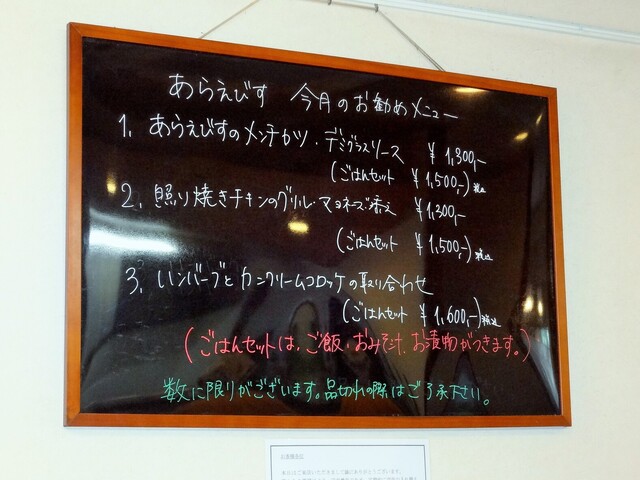 あらえびす 今月のお勧めメニュー
1. あらえびすのメンチカツ・デミグラスソース ¥1,300,-
(ごはんセット ¥1,500,-)税込
2. 照り焼きチキンのグリル・マヨネーズ添え ¥1,300,-
(ごはんセット ¥1,500,-)税込
3. ハンバーグとカニクリームコロッケの取り合わせ
(ごはんセット ¥1,600,-)税込
(ごはんセットは、ご飯・おみそ汁、お漬物がつきます。)
数に限りがございます。品切れの際はご了承下さい。